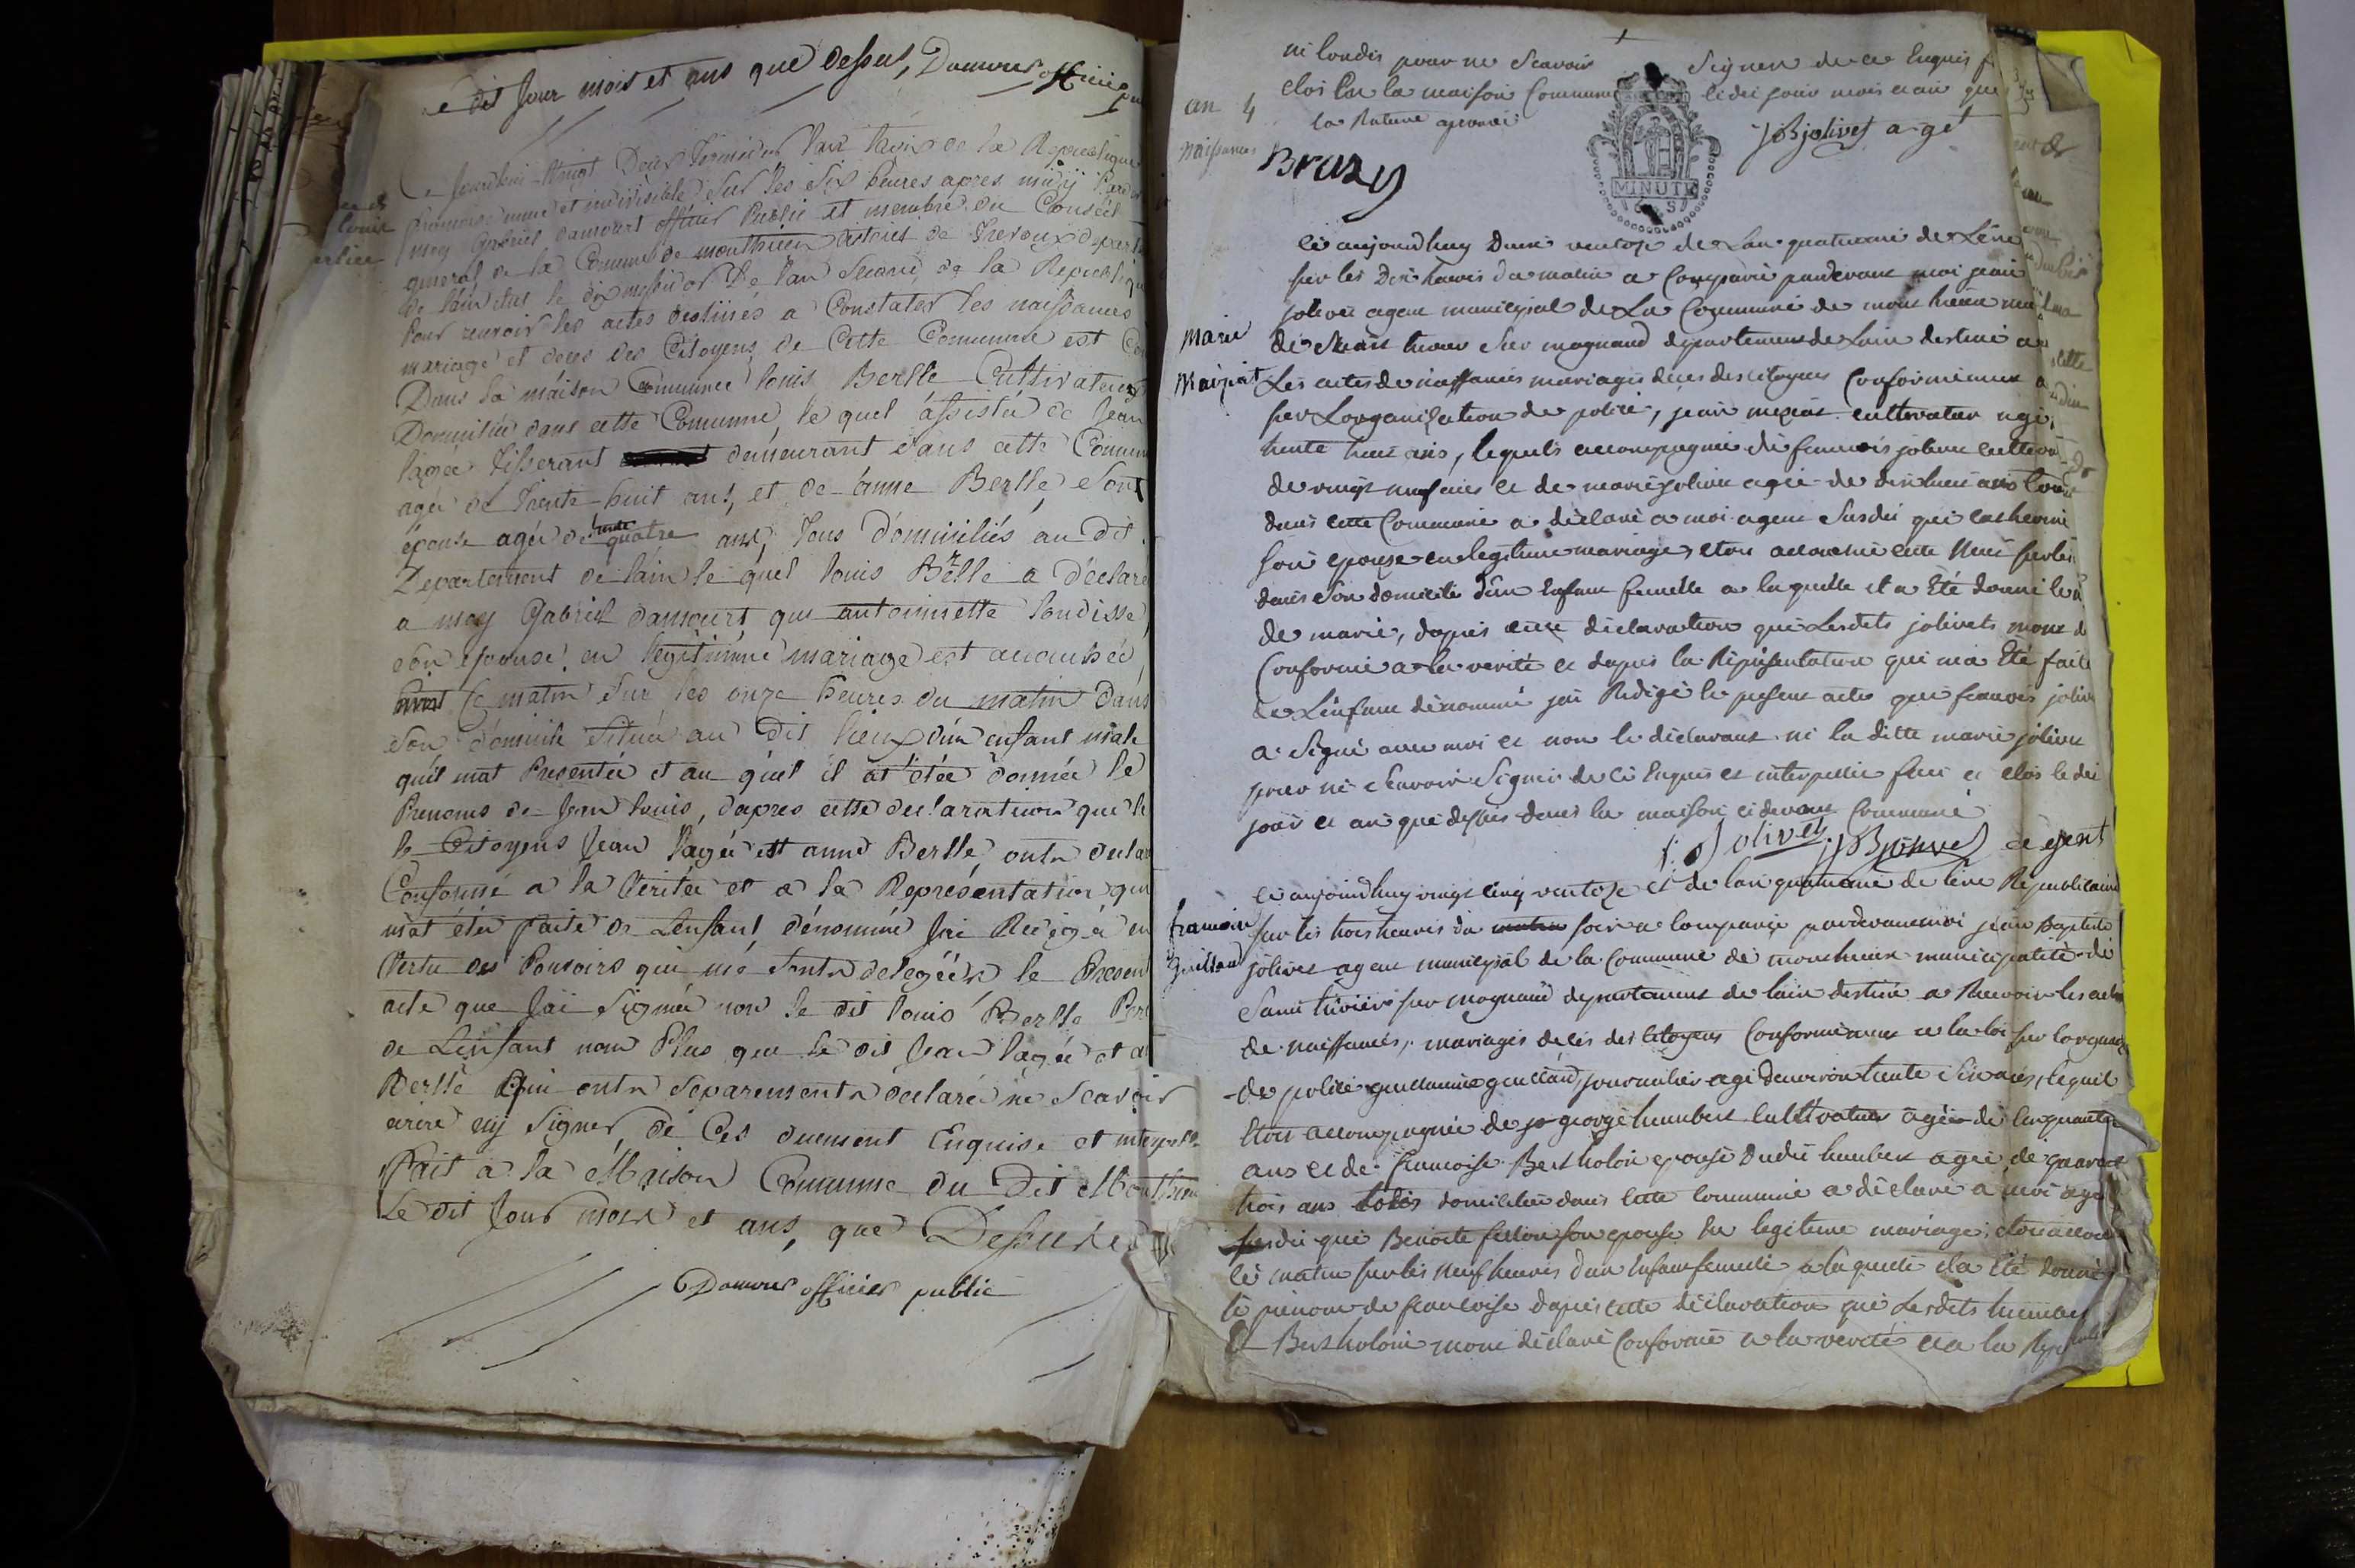 dit jour mois et ans que dessus, Damour officier pu
ce jourdhuy vingt Deux frimaire l'an trois de la Republique
francoise une et indivisible sur les six heures apres midÿ Pard
moy Gabriel damourt officier Public et membre du Conseil
general de la Commune de monthieux district de Trevoux depart
de l'ain élus le dix messidor de l'an Second de la Republiqu
Pour recevoir les actes destinés a Constater les naissances
mariage et deces des Citoyens de Cette Commune est Co
Dans la maison Commune louis Berlle Cultivateur
Domicilié dans cette Commune, le quel assistée de Jean
lagée Tisserant demeurant dans cette Commun
agée de Trente huit ans, et de anne Berlle son
épouse agée de trente quatre ans, Tous Domiciliés au Dit
Département de lain le quel louis Berlle a déclaré
a moy Gabriel damourt que antoinette londisse
son epouse en legitimme mariage est accouchée
ce matin sur les onze heures du matin dans
son domicile situé au Dit lieux d'un enfant mâle
qu'il mat Presentée et au quel il at étée donnée le
Prenoms de Jean louis, dapres cette declaration que le
le Citoyens Jean lagée et anne Berlle ontn declar
Conforme a la Veritée et a la Représentation qui
mat étée faite de Lenfant dénommé Jai Redigé en
Vertu des Pouvoirs qui me sontn delegéér le Present
acte que Jai Signée non le dit louis Berlle Pere
de Lenfant nom Plus que le dit Jean lagée et a
Berlle Qui ontn separementn declaré ne Scavoir
ecrire nÿ Signer de Ces duement Enquise et interpell
fait a la Maison Commune du Dit Monthieu
Le dit Jour mois et ans, que Dessus
Damour officier public
ni loudis pour ne Scavoir Signer de ce Enquis f
clos En la maison Commune ledit jour mois et an que
la Rature aprouvé
an 4
naissances
JBjolivet agt
Brazy
MINUTE
6 S
ce aujourdhuy Duxe ventose de Lan quatrieme de Lere
sur les Dix heures du matin a Comparu pardevant moi jean
jolivet agent municipal de La Commune de mont hieux mu
Marie
de Saint trivier sur mognand departement de Lain destiné a
Maipiat
Les actes de naissances mariages deces des citoyens Conformement a
sur Lorganisation de police, jean mepiat cultivateur agé
trente huit ans, lequels accompagnié de francois jolivet cultiva
de vingt neuf ans et de marie jolivet agée de dixhuit ans tous
dans cette Commune a déclaré a moi agent Susdit que catherine
son epouse en legitime mariage, etoit accouchée cette Nuit sur les
dans son domicile d'un Enfant femelle a laquelle il a Eté donné le
de marie, dapres cette déclaration que Lesdits jolivets mont d
Conforme a la verité et dapres la Representation qui ma Eté faite
de L'enfant dénommé jai Redigé le present acte que francois jolive
a Signé avec moi et non le déclarant ni la ditte marie jolivet
pour ne Scavoir Signer de ce Enquis et interpellé fait et clos le dit
jour et an que dessus dans la maison cidevant Commune
f: Jolivet JBJolivet agent
ce aujourdhuy vingt cinq ventose de lan quatrieme de lere Republicaine
francoise
sur les trois heures du matin soir a comparu pardevant moi jean Baptiste
Guillard
jolivet agent municipal de la Commune de monthieux municipalité de
Saint trivier sur mognand departement de lain destiné a Recevoir les actes
de naissances, mariages deces des citoyens Conformement a la loi sur lorganis
de police guillaume guillard, journalier agé denviron trente Six ans, lequel
etoit accompagnée de george humbert cultivateur agée de cinquante
ans et de francoise Bertholon epouse Dudit humbert agée de quarant
trois ans tous domiciliée dans cette commune a déclaré a moi age
susdit que Benoite fellon son epouse En legitime mariage, etoit accou
ce matin sur les neuf heures dun Enfant femelle a laquelle il a Eté donné
le prenom de francoise dapres cette déclaration que Lesdits humber
Et Bertholon mont déclaré Conforme a la verité et a la Represent